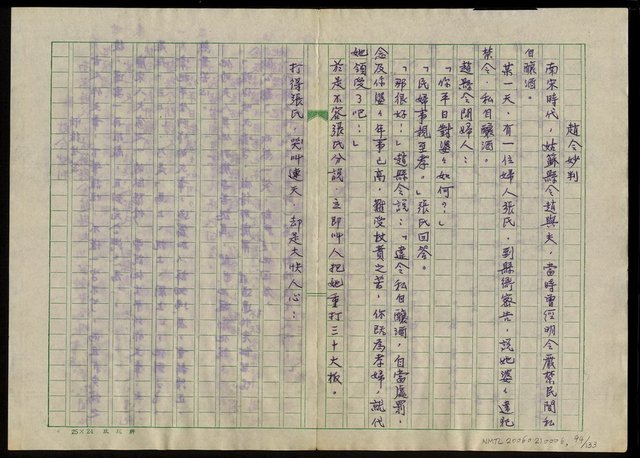 趙令妙判
南宋時代，姑蘇縣令趙與夫，當時曾經明令嚴禁民間私
自釀酒。
某一天，有一位婦人張氏，到縣衙密告，說她婆婆違犯
禁令，私自釀酒。
趙縣令問婦人：
「你平日對婆婆如何？」
「民婦事親至孝。」張氏回答。
「那很好！」趙縣令說：「違令私自釀酒，自當處罰，
念及你婆婆年事已高，難受杖責之苦，你既為孝婦，就代
她領受了吧！」
於是不容張氏分說，立即叫人把她重打三十大板。
打得張氏，哭叫連天，却是大快人心：
25×24
NMTL 20060210006, 94/133